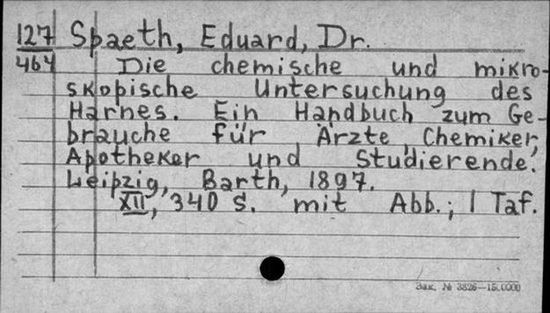 127 Spaeth, Eduard, Dr.
464 Die chemische und mikro-
skopische Untersuchung des
Harnes. Ein Handbuch zum Ge-
brauche für Ärzte, Chemiker,
Apotheker und Studierende.
Leipzig, Barth, 1897.
XII, 340 S. mit Abb.; 1 Taf.
Зак. № 3826—15.0000